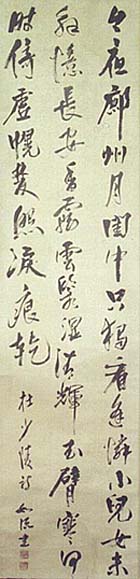 今夜鄜州月閨中只獨看遙憐小兒女未
解憶長安香霧雲鬟濕清輝玉臂寒何
時倚虛幌雙照淚痕乾
杜少陵詩